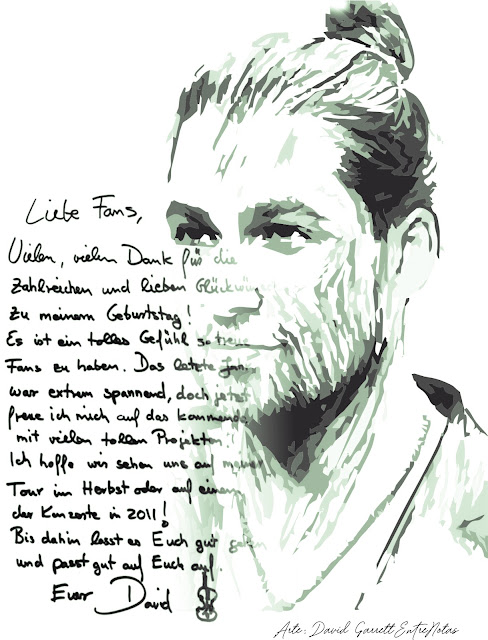 Liebe Fans,
Vielen, vielen Dank für die
zahlreichen und lieben Glückwünsche
zu meinem Geburtstag!
Es ist ein tolles Gefühl so treue
Fans zu haben. Das letzte Jahr
war extrem spannend, doch jetzt
freue ich mich auf das kommende
mit vielen tollen Projekten!
Ich hoffe wir sehen uns auf meiner
Tour im Herbst oder auf einem
der Konzerte in 2011!
Bis dahin lasst es Euch gut gehen
und passt gut auf Euch auf.
Euer David
Arte: David Garrett EntreNotas